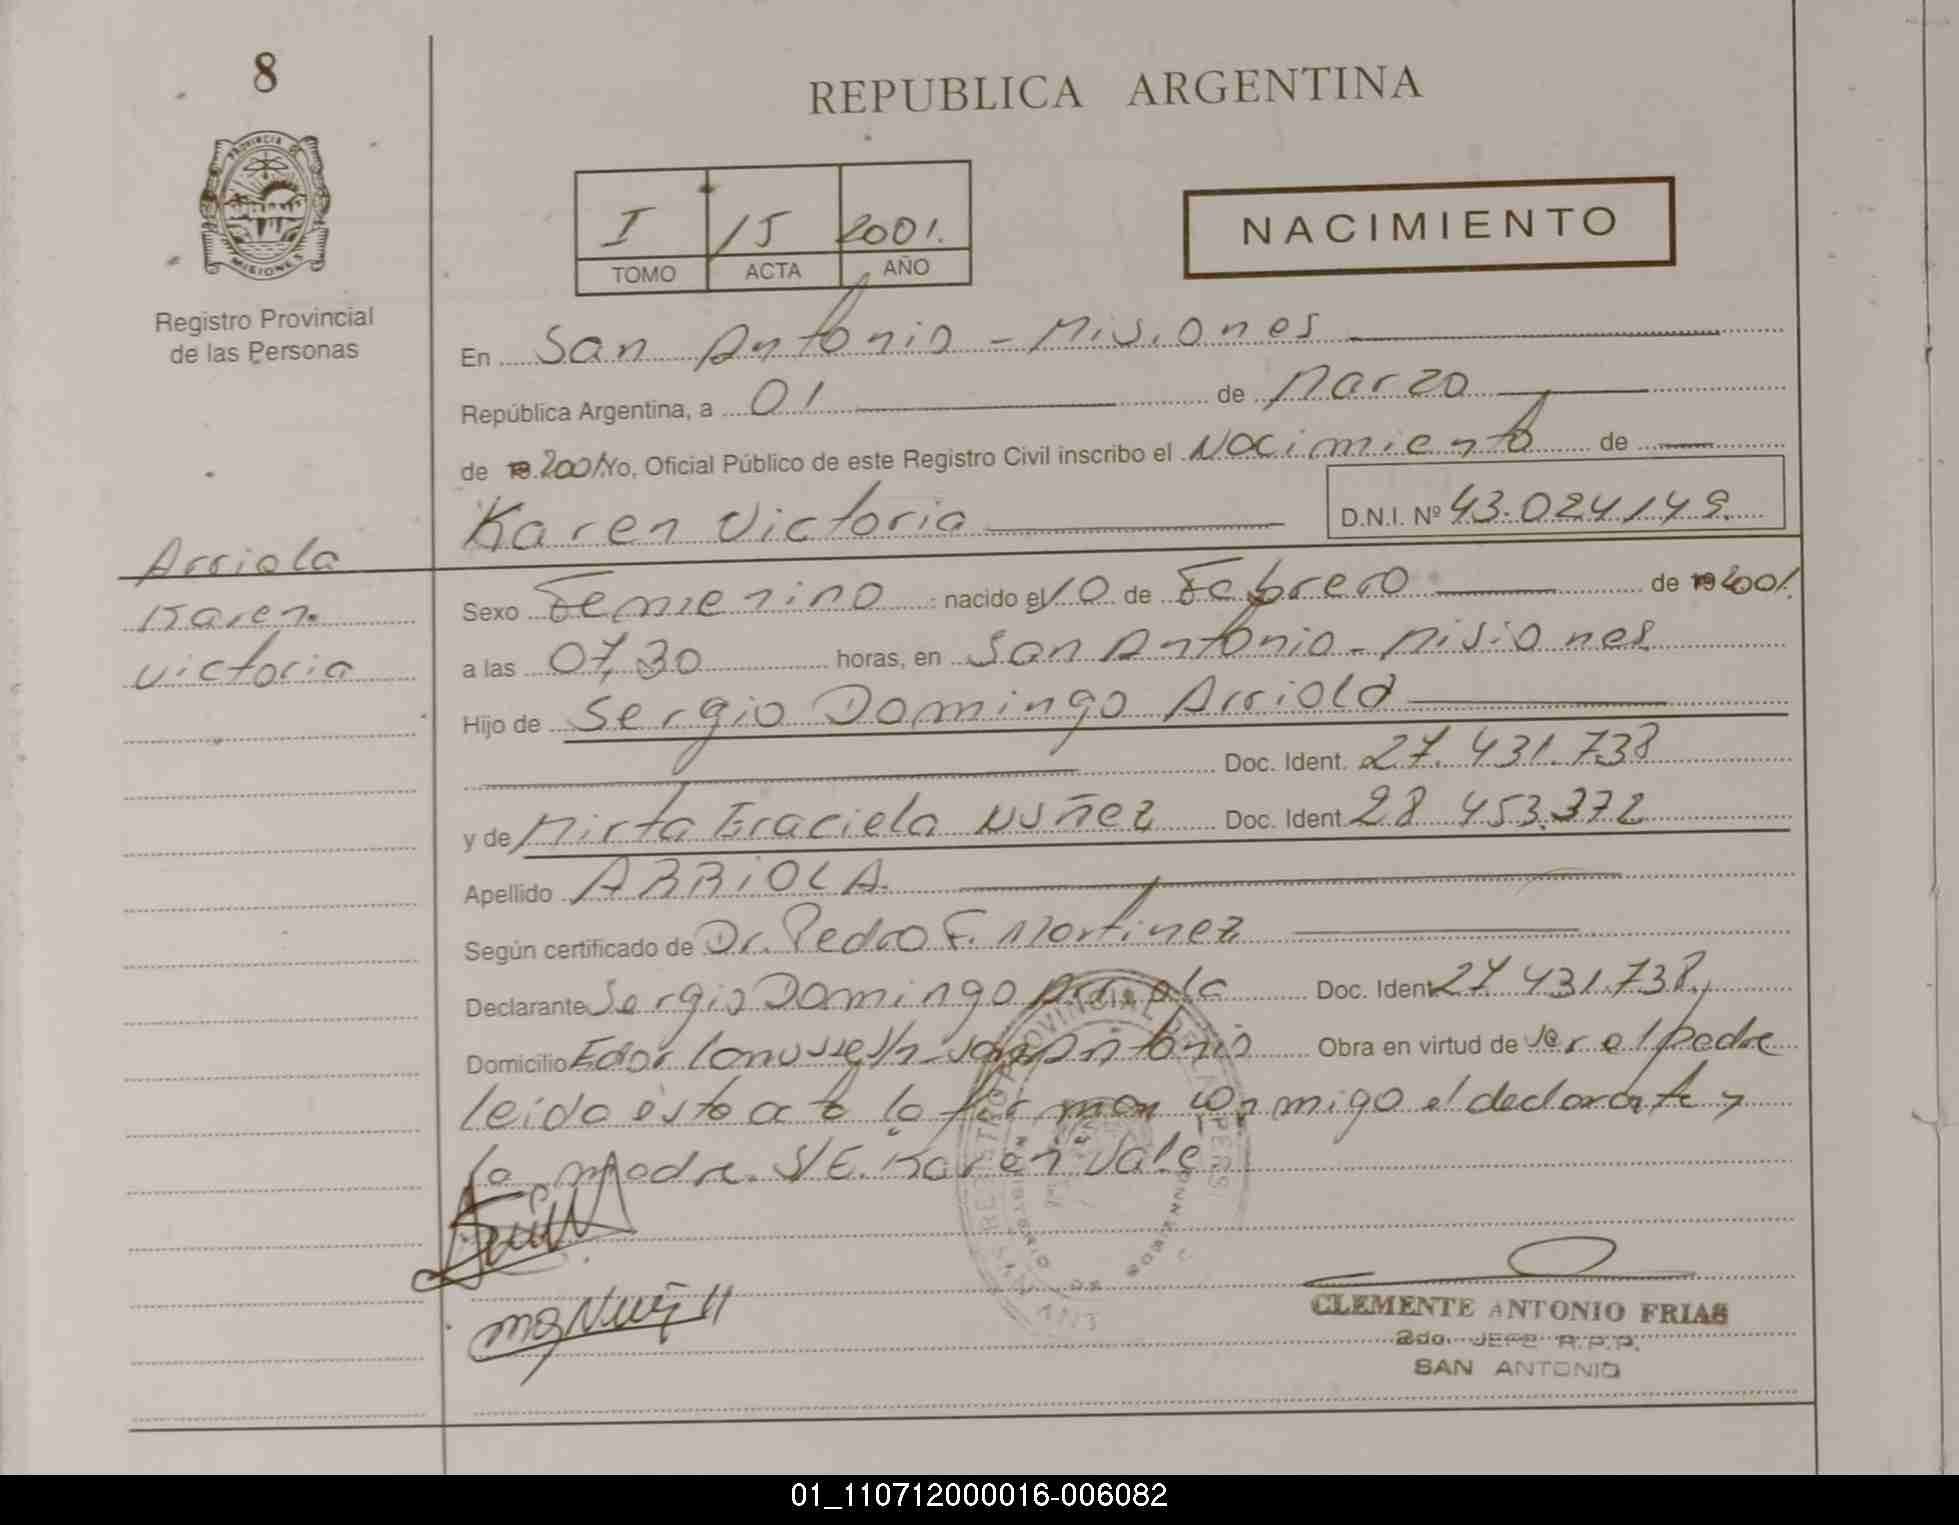 8
REPUBLICA ARGENTINA
PROVINCIA DE
MISIONES
Registro Provincial
de las Personas
I 15 2001.
TOMO ACTA AÑO
NACIMIENTO
En San Antonio - Misiones
República Argentina, a 01 de Marzo
de 19 2001 Yo, Oficial Público de este Registro Civil inscribo el Nacimiento de
Karen Victoria D.N.I. Nº 43.024149.
Arriola
Karen
Victoria
Sexo Femenino nacido el 10 de Febrero de 19 2001.
a las 07,30 horas, en San Antonio - Misiones
Hijo de Sergio Domingo Arriola
Doc. Ident. 27.431.738
y de Mirta Graciela Nuñez Doc. Ident 28 453.372
Apellido ARRIOLA.
Según certificado de Dr. Pedro F. Martinez
Declarante Sergio Domingo Arriola Doc. Ident 27.431.738,
Domicilio Edor Lanusse s/n - San Antonio Obra en virtud de Ser el padre
leida esta acta la firman conmigo el declarante y
la madre. S/E. Karen Vale
CLEMENTE ANTONIO FRIAS
2do. JEFE R.P.P.
SAN ANTONIO
01_110712000016-006082